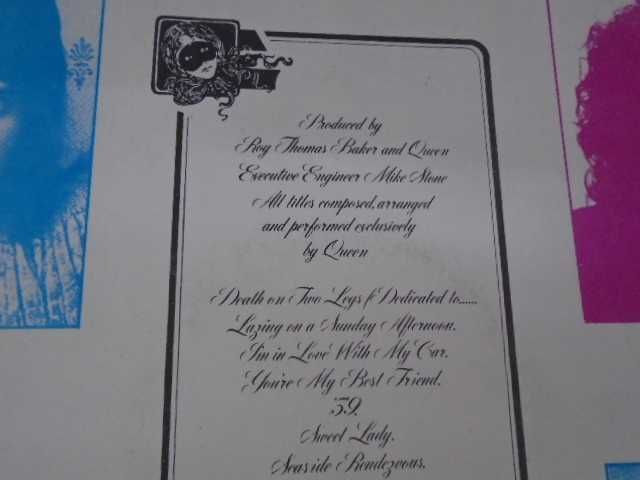 Produced by
Roy Thomas Baker and Queen
Executive Engineer Mike Stone
All titles composed, arranged
and performed exclusively
by Queen
Death on Two Legs (Dedicated to......
Lazing on a Sunday Afternoon.
I'm in Love With My Car.
You're My Best Friend.
'39.
Sweet Lady.
Seaside Rendezvous.